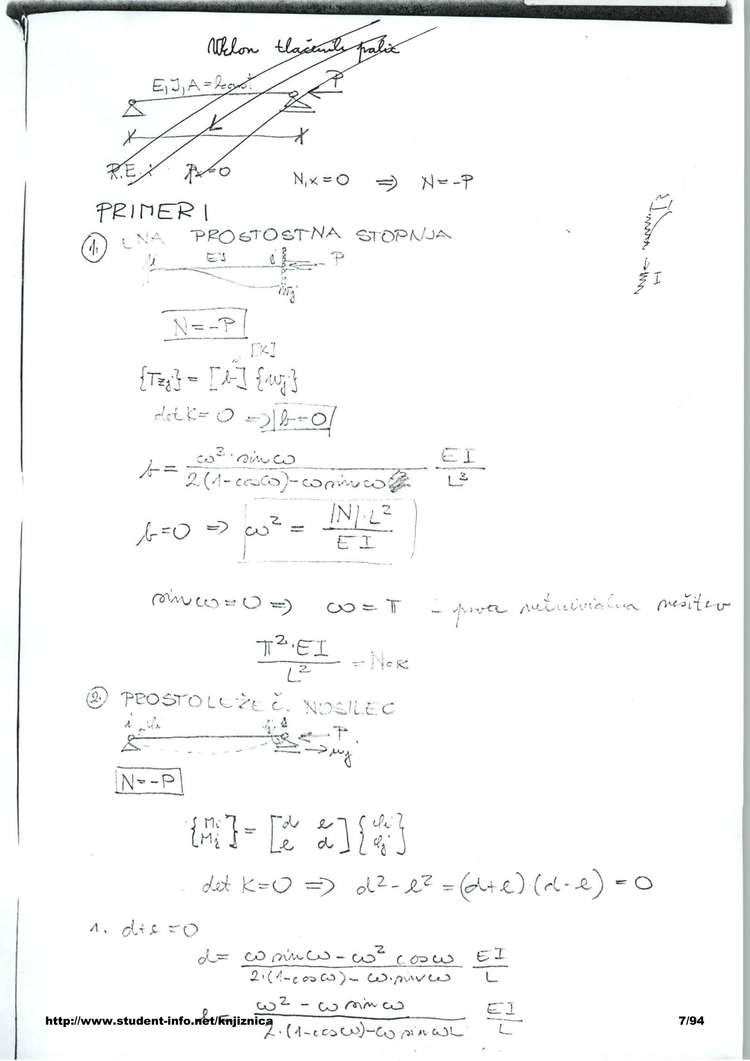 Uklon tlačenih palic
E, I, A = konst.
P
L
R.E.: Px = 0
N,x = 0 ⇒ N = -P
PRIMERI
1. ENA PROSTOSTNA STOPNJA
i EI j P
wj
I
N = -P
[K]
{Tzj} = [b] {wj}
det K = 0 ⇒ b = 0
b = ω²·sinω / (2(1-cosω)-ωsinω) EI / L³
b = 0 ⇒ ω² = |N|·L² / EI
sinω = 0 ⇒ ω = π - prva netrivialna rešitev
π²·EI / L² = Ncr
2. PROSTOLEŽEČ. NOSILEC
i φi φj j
P
uj
N = -P
{Mi Mj} = [d e e d] {φi φj}
det K = 0 ⇒ d² - e² = (d+e)·(d-e) = 0
1. d+e = 0
d = ω sinω - ω² cosω / 2·(1-cosω) - ω·sinω EI / L
ω² - ω sinω / 2·(1-cosω)-ω sinω EI / L
http://www.student-info.net/knjiznica
7/94